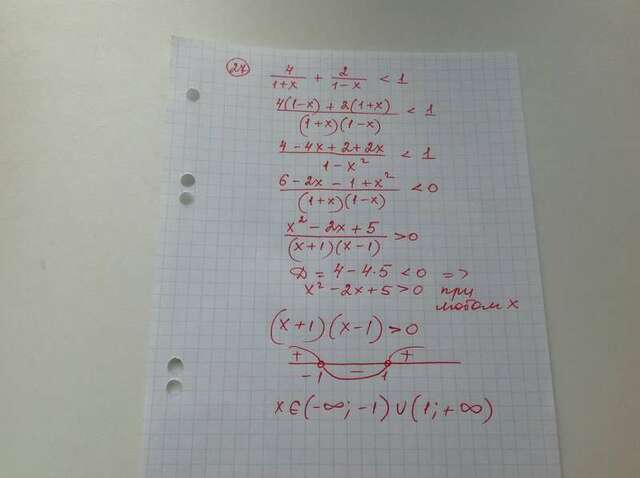 27 4/(1+x) + 2/(1-x) < 1
(4(1-x) + 2(1+x))/((1+x)(1-x)) < 1
(4-4x+2+2x)/(1-x²) < 1
(6-2x-1+x²)/((1+x)(1-x)) < 0
(x²-2x+5)/((x+1)(x-1)) > 0
D = 4-4·5 < 0 =>
x²-2x+5>0 при
любом x
(x+1)(x-1) > 0
+ - +
-1 1
x∈(-∞;-1)∪(1;+∞)